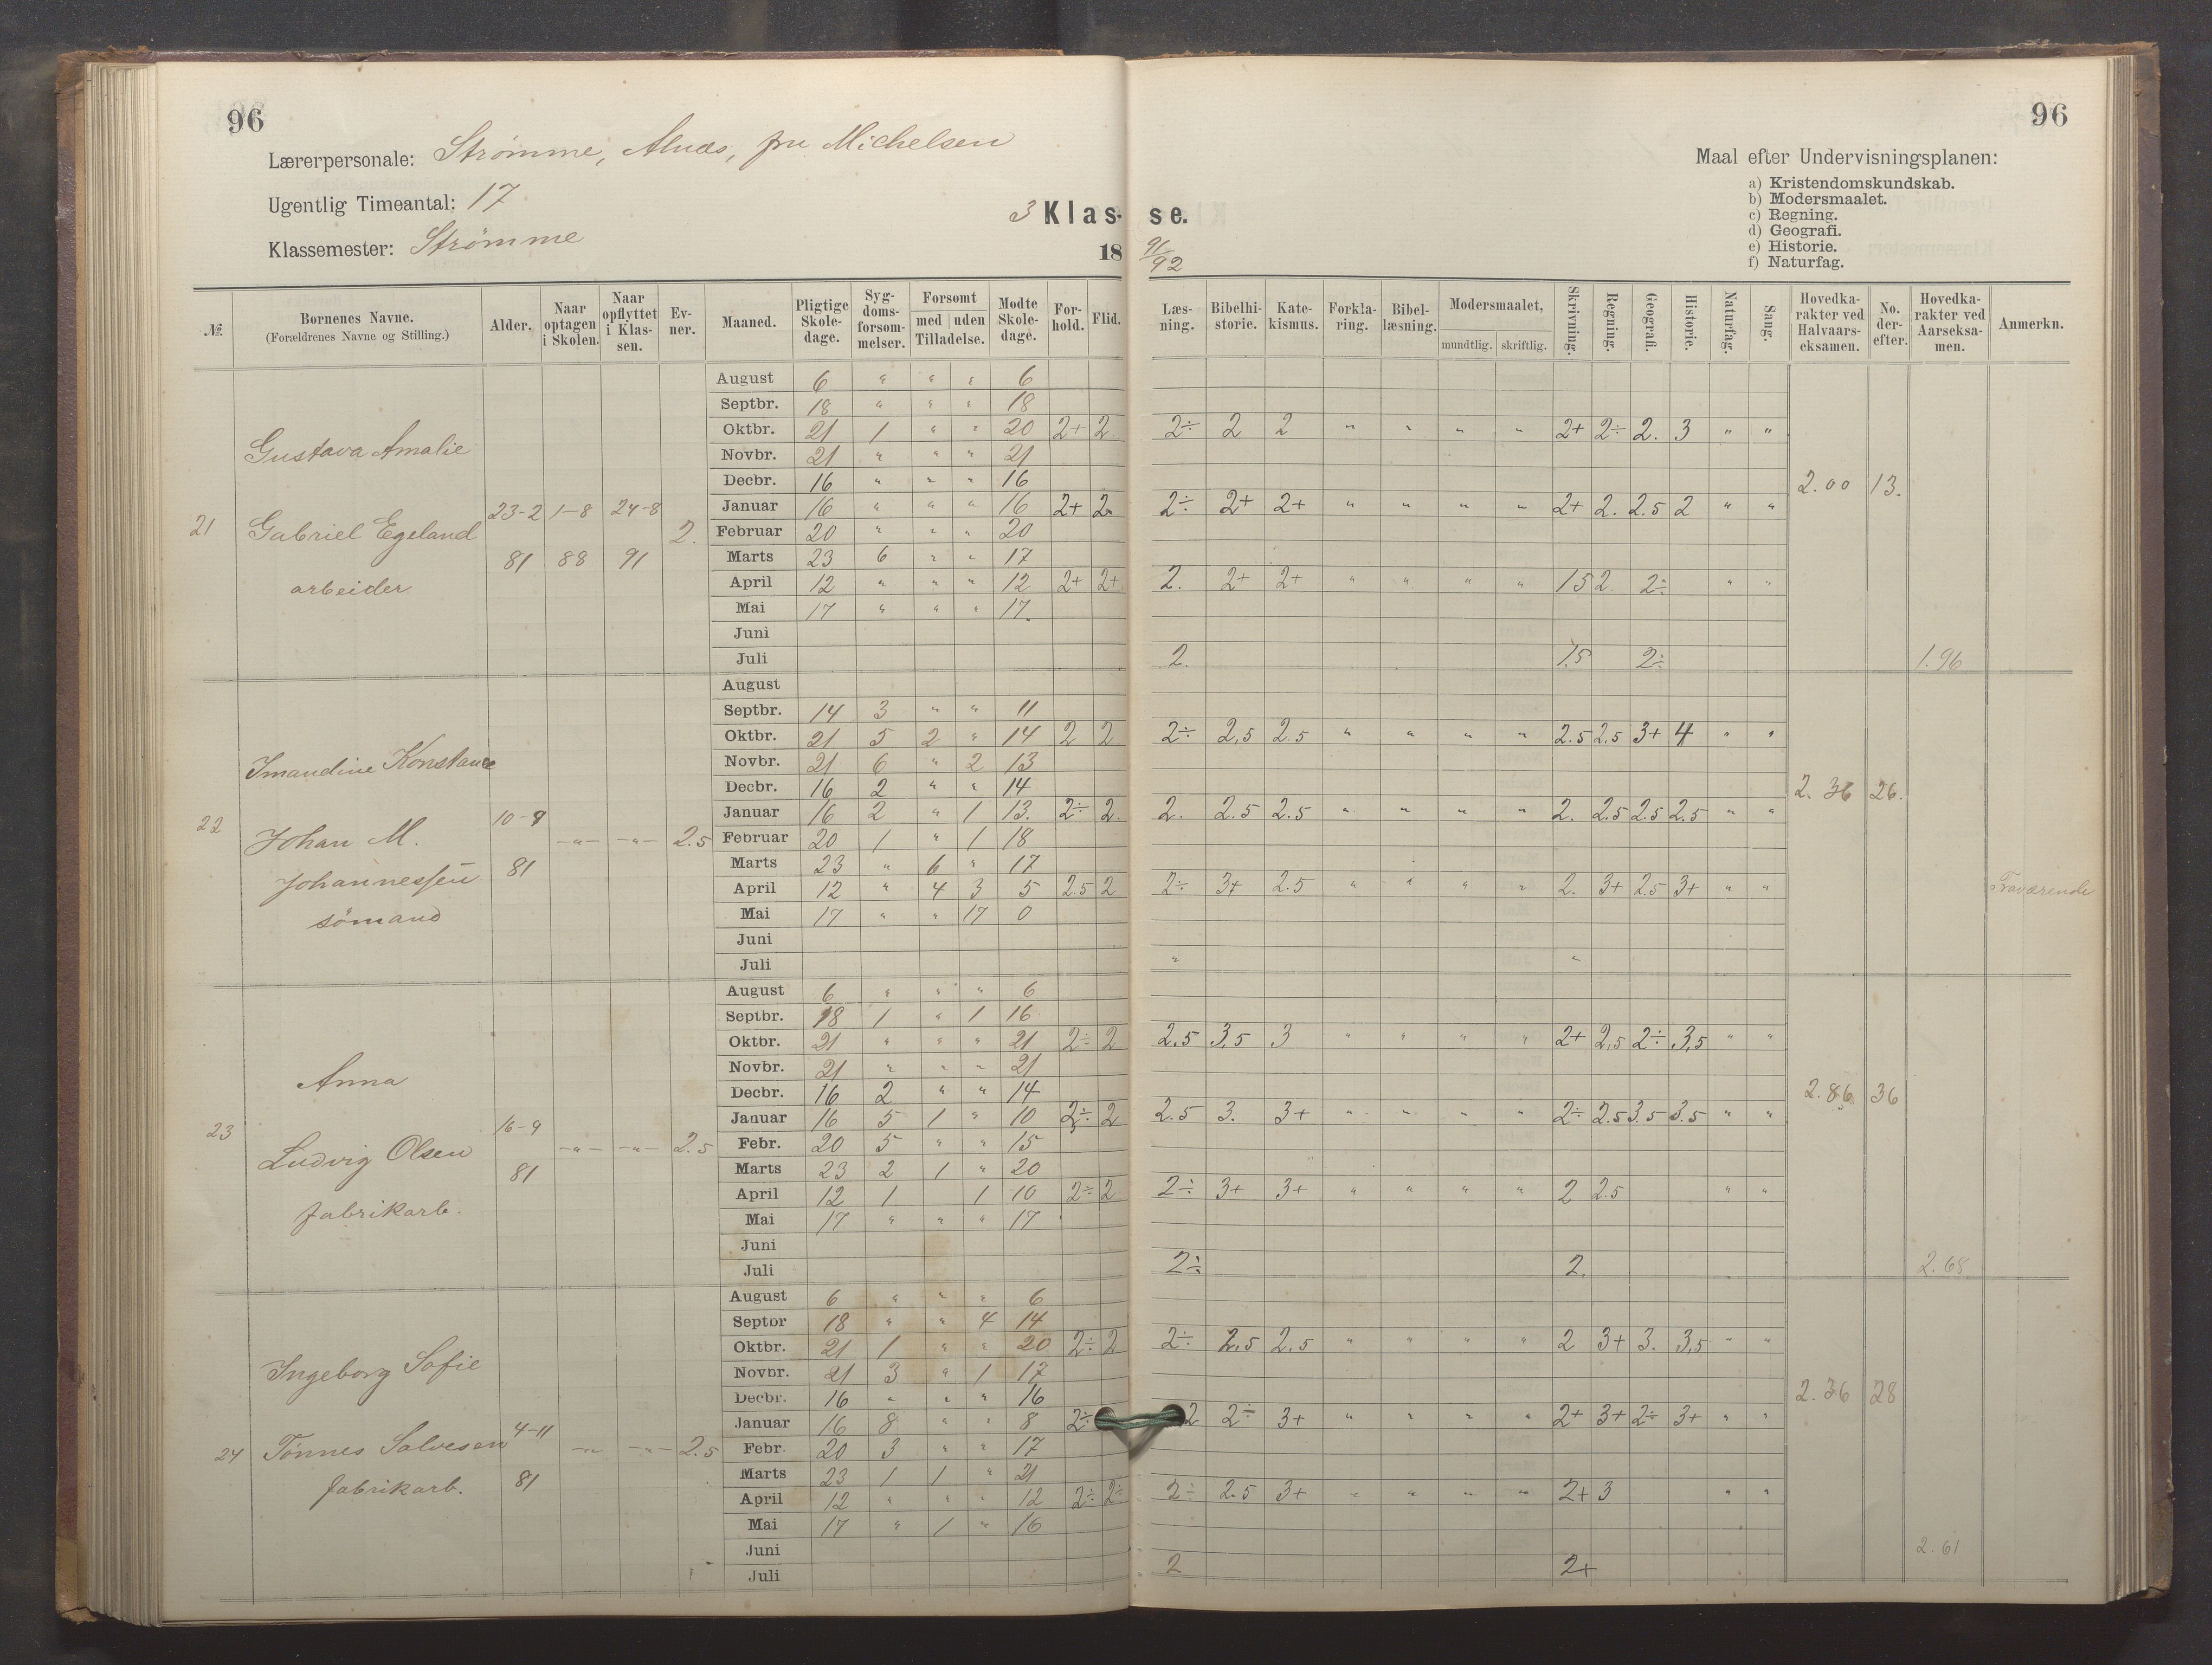 96
96
Lærerpersonale: Strømme, Alnæs, fru Michelsen
Ugentlig Timeantal: 17
Klassemester: Strømme
3 Klas- se.
18 91/92
Maal efter Undervisningsplanen:
a) Kristendomskundskab.
b) Modersmaalet.
c) Regning.
d) Geografi.
e) Historie.
f) Naturfag.
№ | Børnenes Navne. (Forældrenes Navne og Stilling.) | Alder. | Naar optagen i Skolen. | Naar opflyttet i Klassen. | Evner. | Maaned. | Pligtige Skoledage. | Sygdomsforsømmelser. | Forsømt med uden Tilladelse. | Mødte Skoledage. | Forhold. | Flid. | Læsning. | Bibelhistorie. | Katekismus. | Forklaring. | Bibellæsning. | Modersmaalet, mundtlig. skriftlig. | Skrivning. | Regning. | Geografi. | Historie. | Naturfag. | Sang. | Hovedkarakter ved Halvaarseksamen. | No. derefter. | Hovedkarakter ved Aarseksamen. | Anmerkn.
21 Gustava Amalie
Gabriel Egeland
arbeider
23-2 81 | 1-8 88 | 24-8 91 | 2.
August 6 " " " 6
Septbr. 18 " " " 18
Oktbr. 21 1 " " 20 2+ 2 2÷ 2 2 " " " " 2+ 2÷ 2. 3 " "
Novbr. 21 " " " 21
Decbr. 16 " " " 16 2.00 13.
Januar 16 " " " 16 2+ 2. 2÷ 2+ 2+ " " " " 2+ 2. 2.5 2 " "
Februar 20 " " " 20
Marts 23 6 " " 17
April 12 " " " 12 2+ 2+ 2. 2+ 2+ " " " " 15 2. 2÷ " "
Mai 17 " " " 17.
Juni
Juli 2. 1.5 2÷ 1.96
22 Imandine Konstance
Johan M.
Johannessen
sømand
10-9 81 | -"- | -"- | 2.5
August
Septbr. 14 3 " " 11
Oktbr. 21 5 2 " 14 2 2 2÷ 2,5 2.5 " " " " 2.5 2.5 3+ 4 " "
Novbr. 21 6 " 2 13
Decbr. 16 2 " " 14 2.36 26.
Januar 16 2 " 1 13. 2÷ 2. 2. 2.5 2.5 " " " " 2. 2.5 2.5 2.5 " "
Februar 20 1 " 1 18
Marts 23 " 6 " 17
April 12 " 4 3 5 2.5 2 2÷ 3+ 2.5 " " " " 2. 3+ 2.5 3+ " " Fraværende
Mai 17 " " 17 0
Juni
Juli " "
23 Anna
Ludvig Olsen
fabrikarb.
16-9 81 | -"- | -"- | 2.5
August 6 " " " 6
Septbr. 18 1 " 1 16
Oktbr. 21 " " " 21 2÷ 2 2.5 3,5 3 " " " " 2+ 2,5 2÷ 3,5 " "
Novbr. 21 " " " 21
Decbr. 16 2 " " 14 2.86 36
Januar 16 5 1 " 10 2÷ 2 2.5 3. 3+ " " " " 2÷ 2.5 3.5 3.5 " "
Febr. 20 5 " " 15
Marts 23 2 1 " 20
April 12 1 1 10 2÷ 2 2÷ 3+ 3+ " " " " 2 2.5 " "
Mai 17 " " " 17
Juni
Juli 2÷ 2. 2.68
24 Ingeborg Sofie
Tønnes Salvesen
fabrikarb.
4-11 81 | -"- | -"- | 2.5
August 6 " " " 6
Septor 18 " " 4 14
Oktbr. 21 1 " " 20 2÷ 2 2÷ 2,5 2.5 " " " " 2 3+ 3. 3,5 " "
Novbr. 21 3 " 1 17
Decbr. 16 " " " 16 2.36 28
Januar 16 8 " " 8 2÷ 2 2÷ 3+ " " " " 2+ 3+ 2÷ 3+ " "
Febr. 20 3 " " 17
Marts 23 1 1 " 21
April 12 " " " 12 2÷ 2÷ 2÷ 2.5 3+ " " " " 2+ 3 " "
Mai 17 " 1 " 16
Juni 2.61
Juli 2 2+